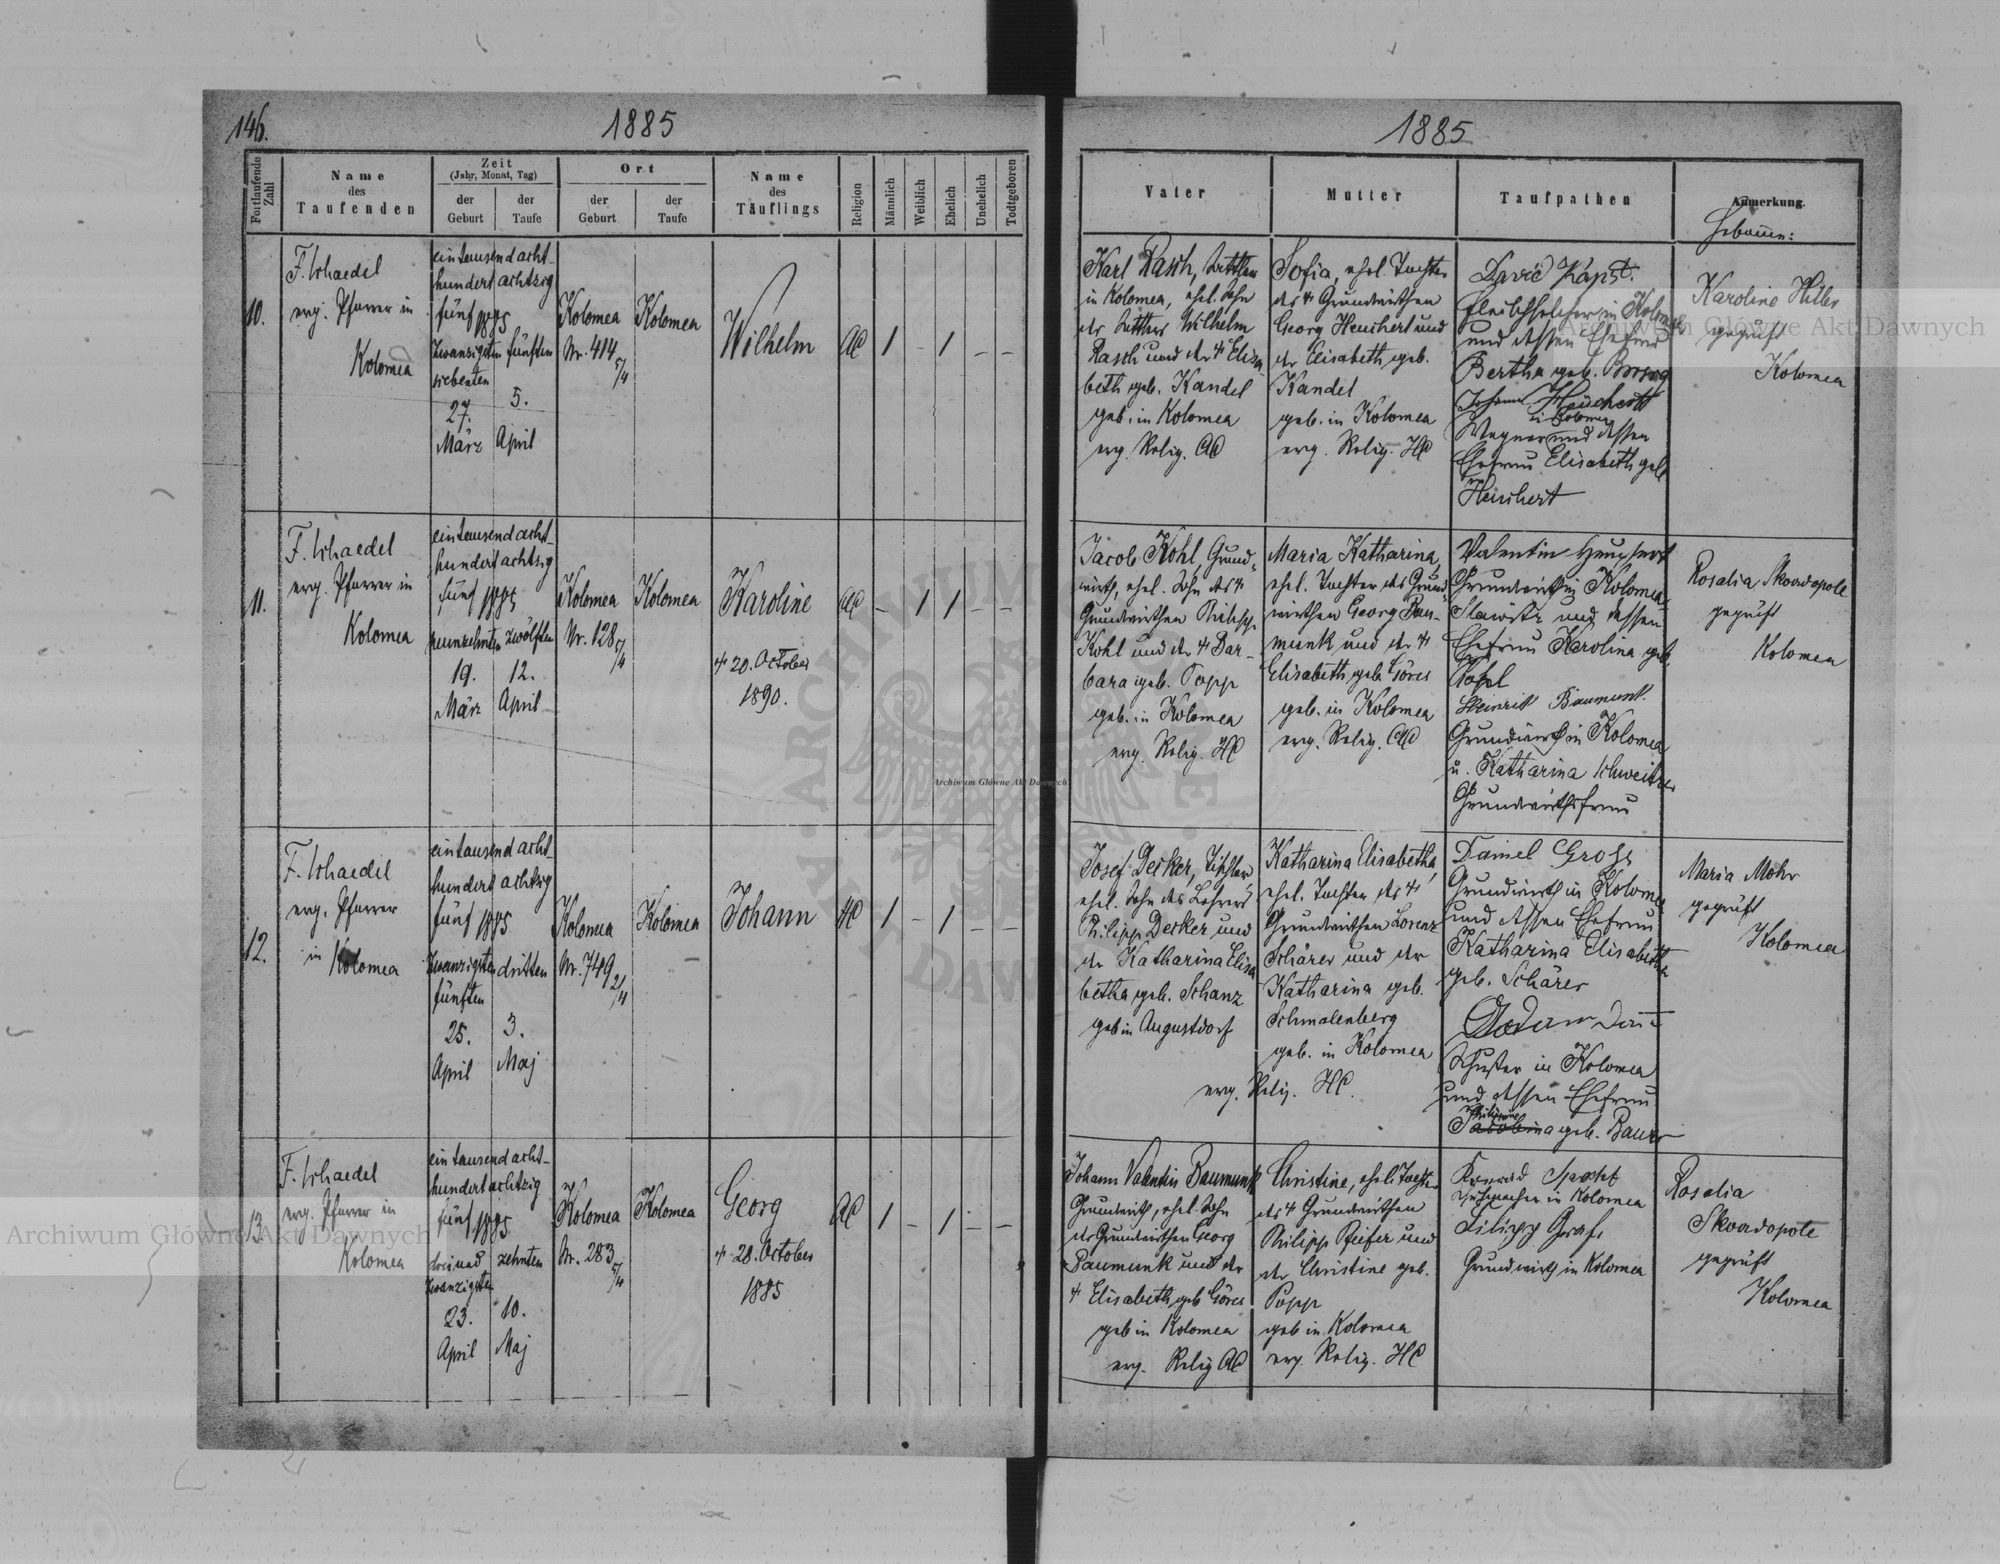 146.
1885
Fortlaufende Zahl
Name des Taufenden
Zeit
(Jahr, Monat, Tag)
der Geburt
der Taufe
Ort
der Geburt
der Taufe
Name des Täuflings
Religion
Männlich
Weiblich
Ehelich
Unehelich
Todtgeboren
10.
F. Schaedel
evg. Pfarrer in
Kolomea
eintausend acht-
hundert achtzig
fünf 1885
zwanzigsten fünften
siebenten
27. 5.
März April
Kolomea
Nr. 414
5/4
Kolomea
Wilhelm
AC
1 - 1 - -
11.
F. Schaedel
evg. Pfarrer in
Kolomea
eintausend acht-
hundert achtzig
fünf 1885
neunzehnten zwölften
19. 12.
März April
Kolomea
Nr. 128
5/4
Kolomea
Karoline
† 20. October
1890.
AC
- 1 1 - -
12.
F. Schaedel
evg. Pfarrer
in Kolomea
eintausend acht-
hundert achtzig
fünf 1885
zwanzigsten dritten
fünften
25. 3.
April Maj
Kolomea
Nr. 749
2/4
Kolomea
Johann
HC
1 - 1 - -
13.
F. Schaedel
evg. Pfarrer in
Kolomea
eintausend acht-
hundert achtzig
fünf 1885
drei und zehnten
zwanzigsten
23. 10.
April Maj
Kolomea
Nr. 283
5/4
Kolomea
Georg
† 28. October
1885
AC
1 - 1 - -
1885
Vater
Mutter
Taufpathen
Anmerkung
Hebamme:
Karl Rasch, Sattler
in Kolomea, ehel. Sohn
des Sattlers Wilhelm
Rasch und der † Elisa
beth geb. Kandel
geb. in Kolomea
evg. Relig. AC
Sofia, ehel. Tochter
des † Grundwirthen
Georg Heuchert und
der Elisabeth geb.
Kandel
geb. in Kolomea
evg. Relig. HC
David
in Kolomea
und dessen Ehefrau
Bertha geb.
Johann Heuchert
in Kolomea
Wagner und dessen
Ehefrau Elisabeth geb
Heuchert
Karoline Hiller
geprüft
Kolomea
Jacob Kohl, Grund-
wirth, ehel. Sohn des †
Grundwirthen Philipp
Kohl und der † Bar-
bara geb. Popp
geb. in Kolomea
evg. Relig. HC
Maria Katharina,
ehel. Tochter des Grund
wirthen Georg Bau-
munk und der †
Elisabeth geb. Göres
geb. in Kolomea
evg. Relig. AC
Valentin Heuchert
Grundwirth in Kolomea-
und dessen
Ehefrau Karolina geb.
Kohl
Heinrich Baumunk
Grundwirth in Kolomea
u. Katharina Schweitzer
Grundwirthsfrau
Rosalia Skordopole
geprüft
Kolomea
Josef Decker, Tischler
ehel. Sohn des Lehrers
Philipp Decker und
der Katharina Elisa
betha geb. Schanz
geb in Augustdorf
Katharina Elisabetha,
ehel. Tochter des †
Grundwirthen Lorenz
Schärer und der
Katharina geb.
Schmalenberg
geb. in Kolomea
evg. Relig. HC.
Daniel Gross
Grundwirth in Kolomea
und dessen Ehefrau
Katharina Elisabetha
geb. Schärer
Schuster in Kolomea
und dessen Ehefrau
Philipine
Jacobina geb. Bauer
Maria Mohr
geprüft
Kolomea
Johann Valentin Baumunk
Grundwirth, ehel. Sohn
des Grundwirthen Georg
Baumunk und der
† Elisabeth geb Göres
geb in Kolomea
evg. Relig AC
Christine, ehel. Tochter
des † Grundwirthen
Philipp Pfeifer und
der Christine geb.
Popp
geb in Kolomea
evg. Relig. HC
Konrad
in Kolomea
Filipp Graf,
Grundwirth in Kolomea
Rosalia
Skordopole
geprüft
Kolomea
Archiwum Główne Akt Dawnych
Archiwum Główne Akt Dawnych
Archiwum Główne Akt Dawnych